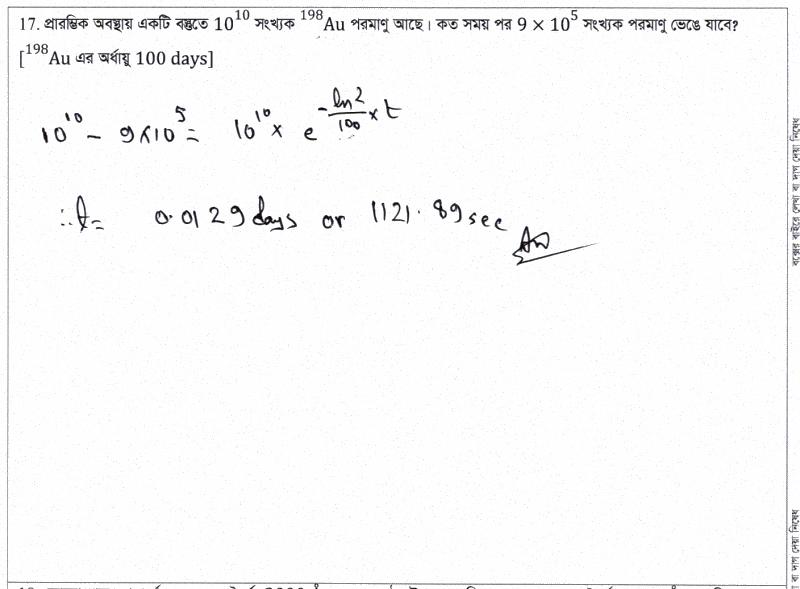 17. প্রারম্ভিক অবস্থায় একটি বস্তুতে 10^10 সংখ্যক ^198Au পরমাণু আছে। কত সময় পর 9 × 10^5 সংখ্যক পরমাণু ভেঙে যাবে?
[^198Au এর অর্ধায়ু 100 days]
10^10 - 9×10^5 = 10^10 × e^(-ln2/100 × t)
∴ t = 0.0129 days or 1121.89 sec
Ans
বক্সের বাইরে লেখা বা দাগ দেয়া নিষেধ
বা দাগ দেয়া নিষেধ